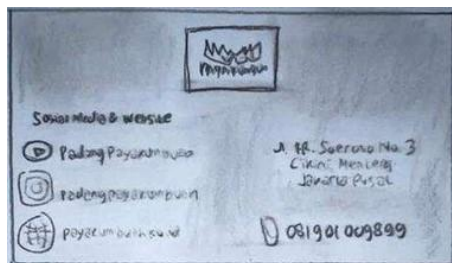 Payakumbuah
Sosial Media & Website
Padang Payakumbuah
padangpayakumbuah
payakumbuah.su.id
Jl. RP. Soeroso No. 3
Cikini Menteng
Jakarta Pusat
081901009899